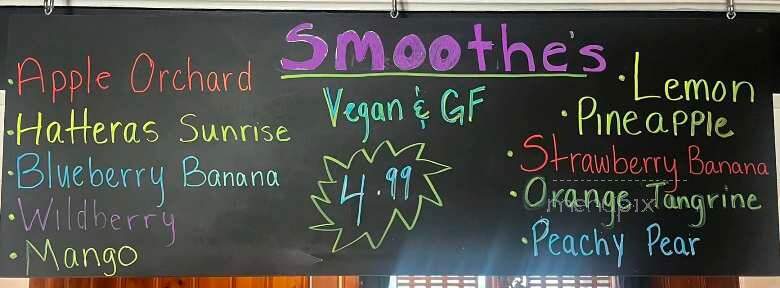 Smoothe's
Vegan & GF
4.99
• Apple Orchard
• Hatteras Sunrise
• Blueberry Banana
• Wildberry
• Mango
• Lemon
• Pineapple
• Strawberry Banana
• Orange Tangrine
• Peachy Pear
menupix